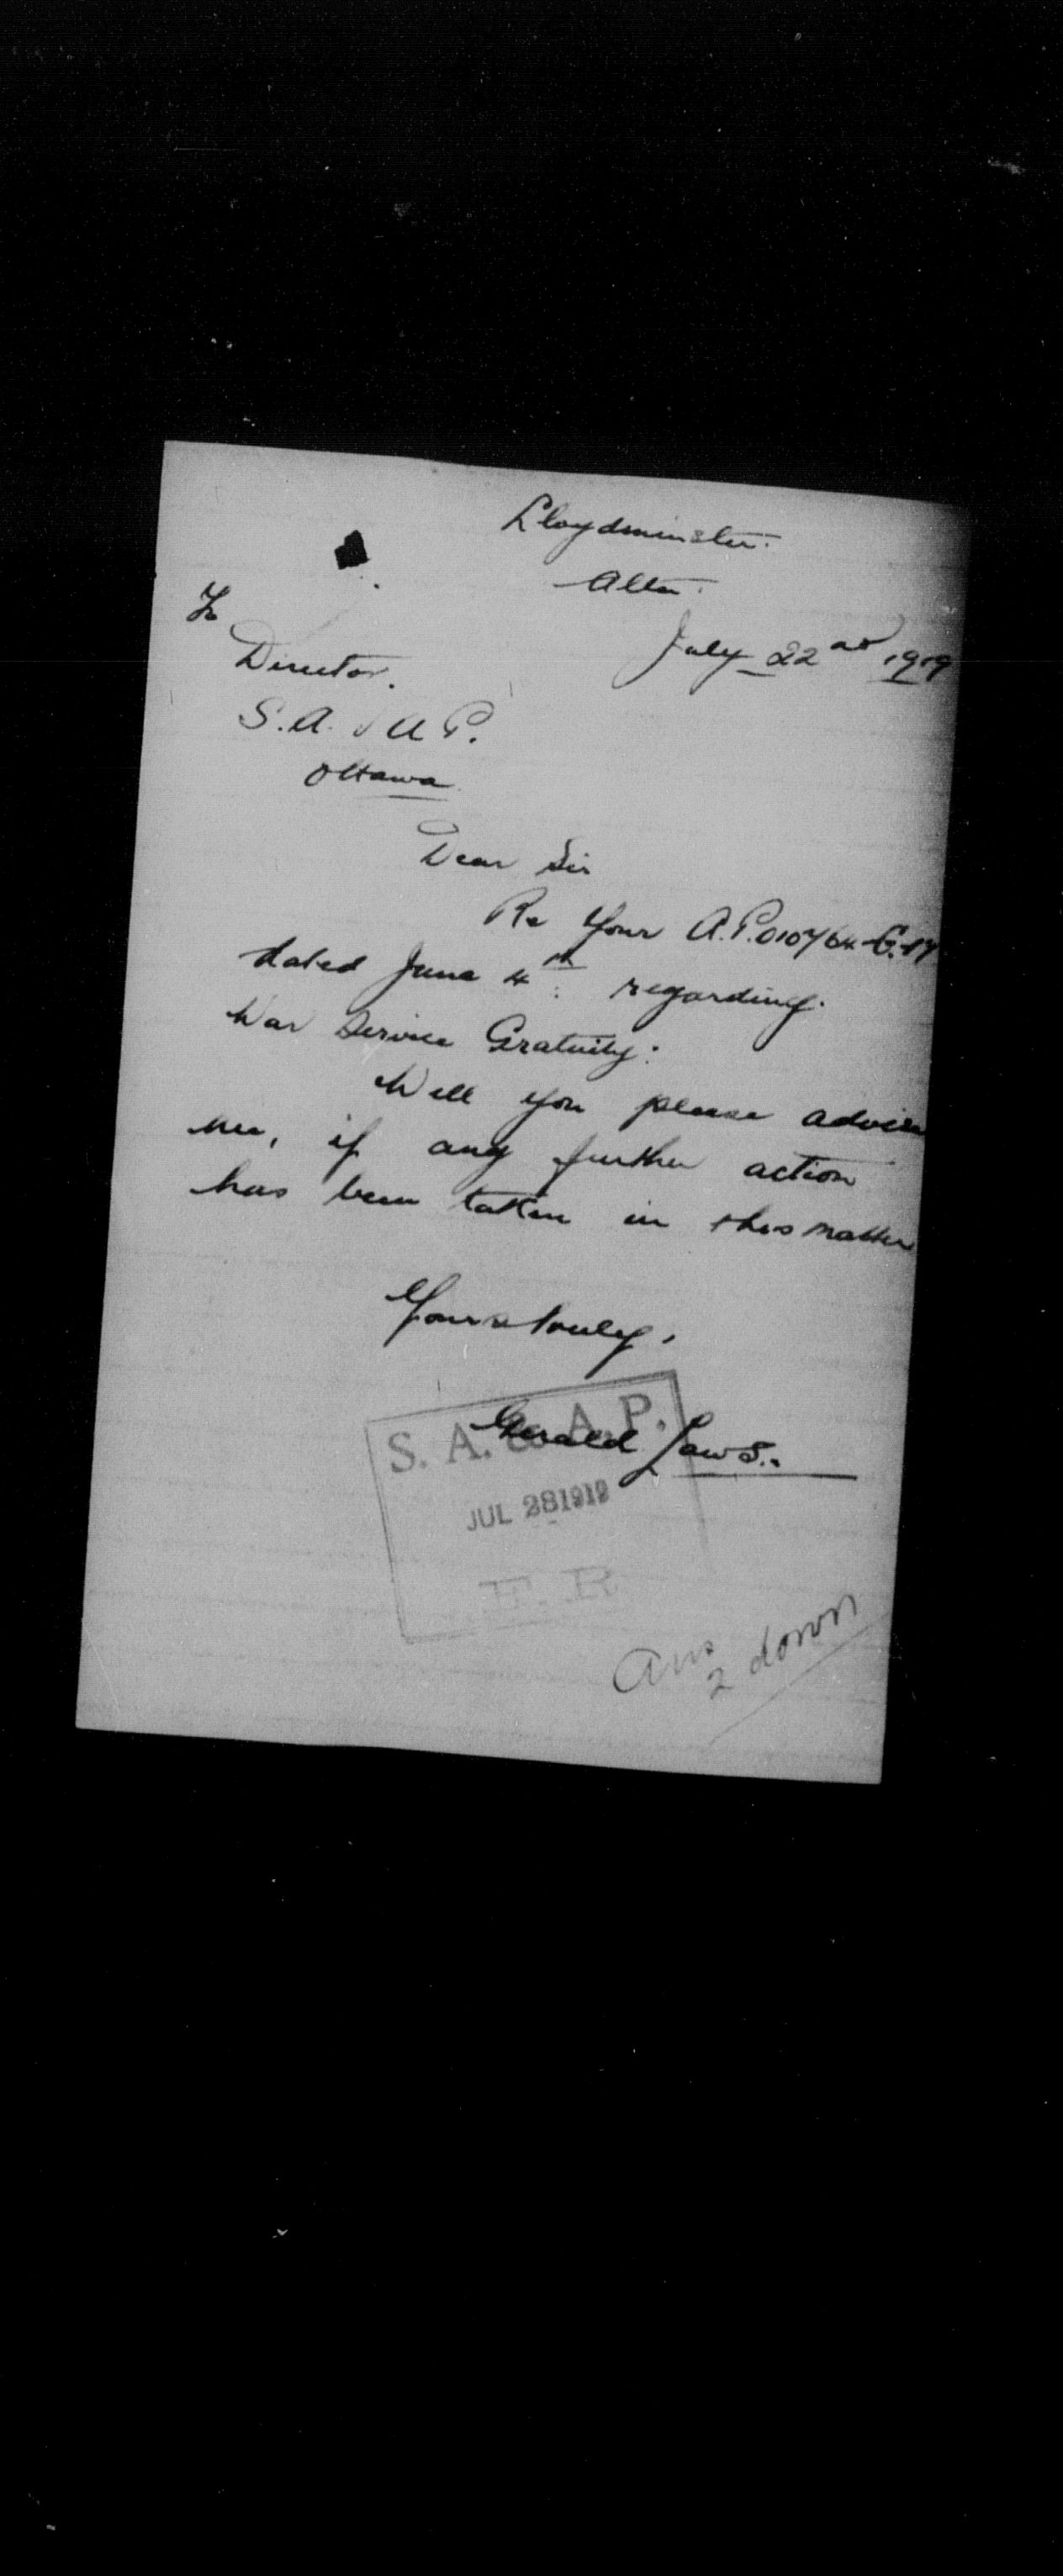 Lloydminster.
Alta.
July 22nd 1919
To
Director.
S. A. & A P.
Ottawa
Dear Sir
Re Your A.P.010764-G-17
dated June 4th: regarding.
War Service Gratuity.
Will you please advise
me, if any further action
has been taken in this matter
Yours truly,
Gerald Laws.
S. A. & A. P.
JUL 28 1919
F. R
Ans
2 down